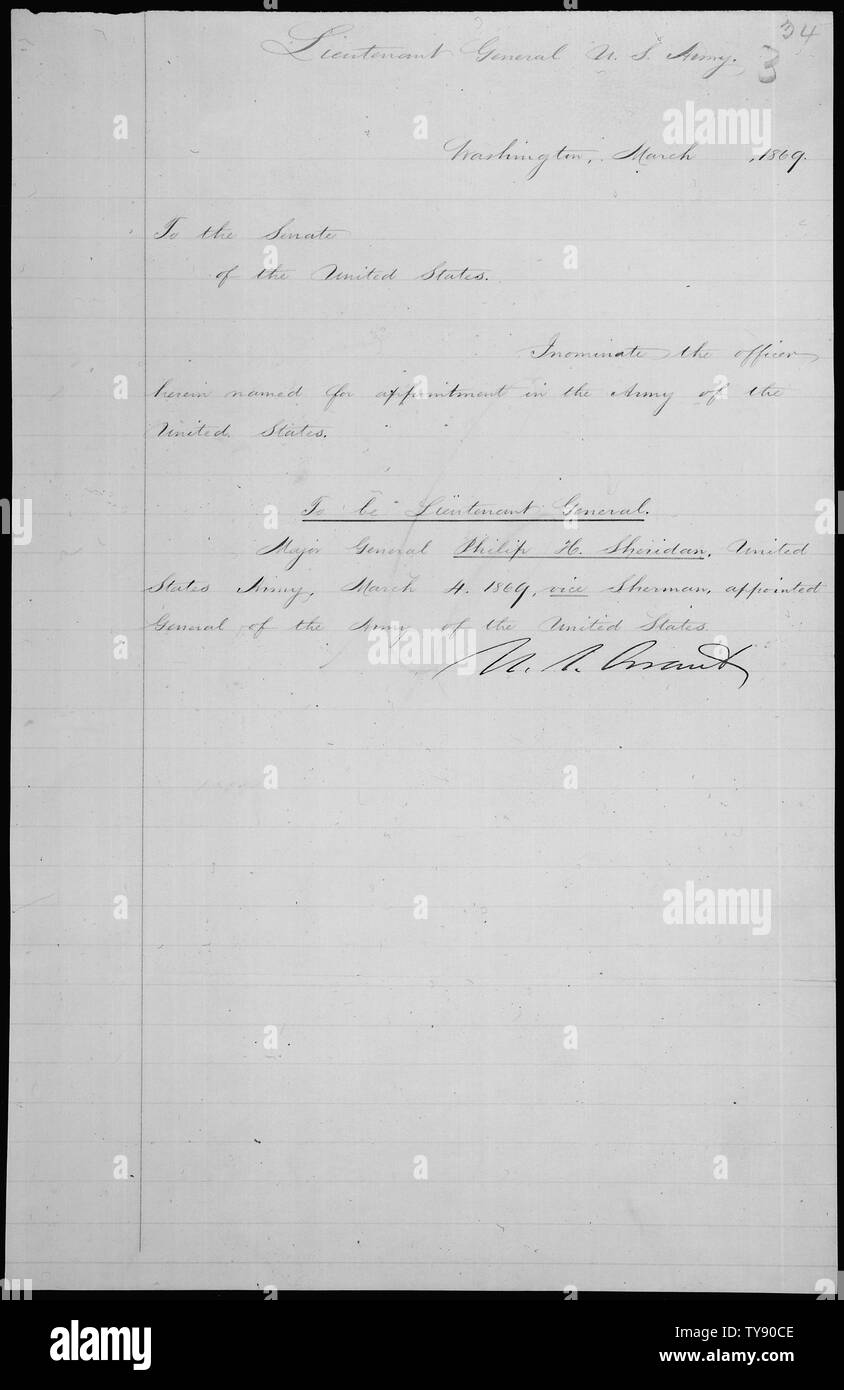 34
3
Lieutenant General U. S. Army.
Washington, March , 1869.
To the Senate
of the United States.
I nominate the officer
herein named for appointment in the Army of the
United States.
To be Lieutenant General.
Major General Philip H. Sheridan, United
States Army, March 4. 1869, vice Sherman, appointed
General of the Army of the United States.
U. S. Grant
a
alamy
alamy
Image ID: TY90CE
www.alamy.com